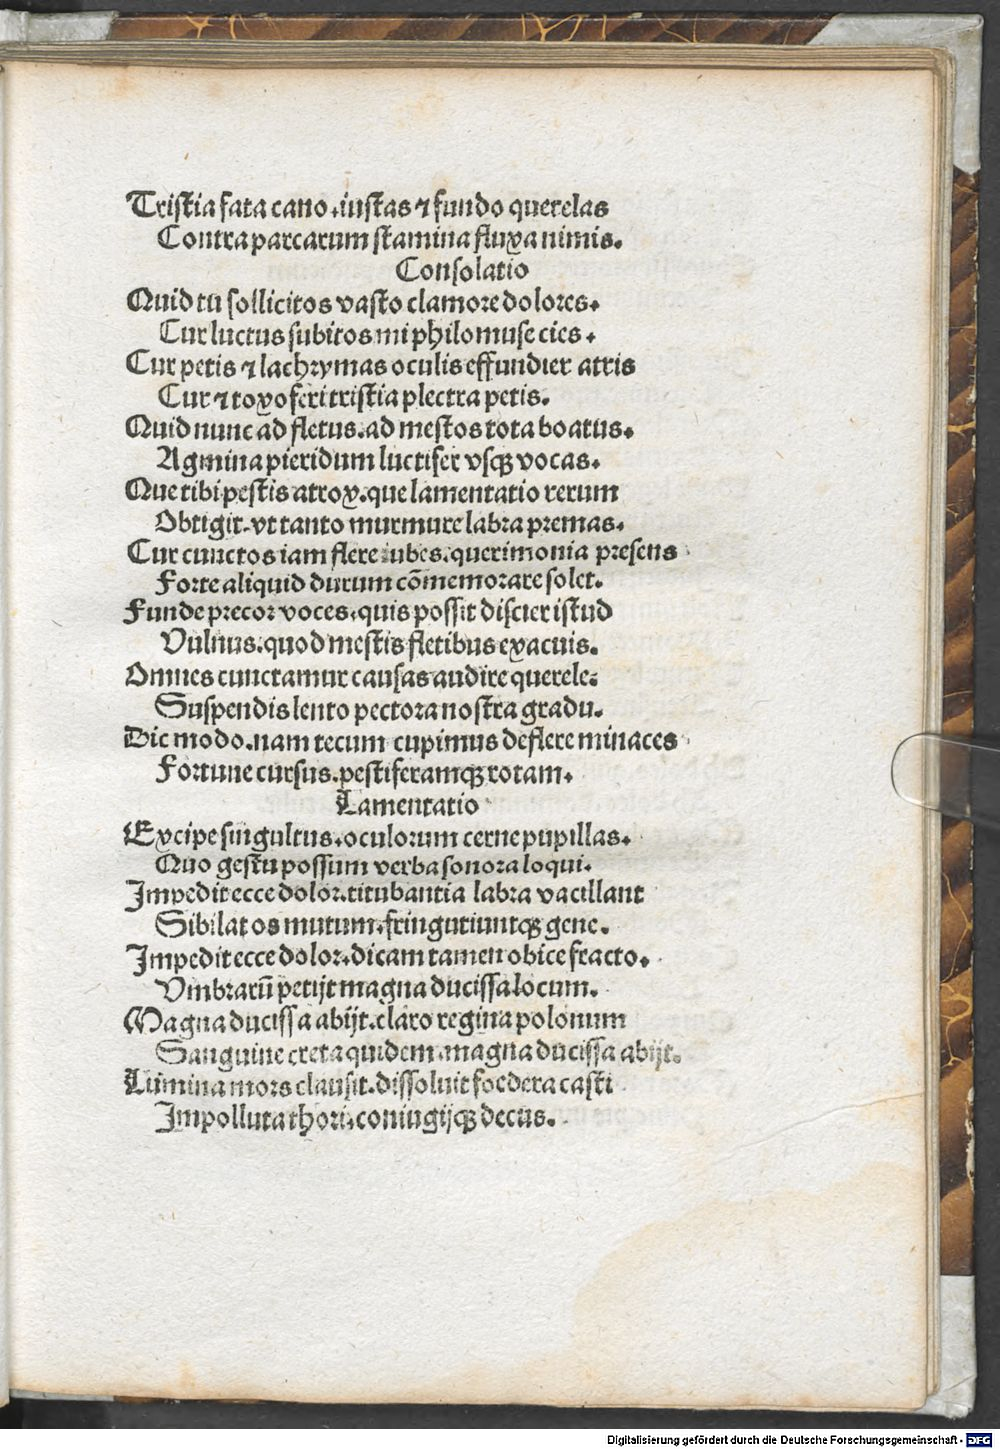 Tristia fata cano.iustas ⁊ fundo querelas
Contra parcarum stamina fluxa nimis.
Consolatio
Quid tu sollicitos vasto clamore dolores.
Cur luctus subitos mi philomuse cies.
Cur petis ⁊ lachrymas oculis effundier atris
Cur ⁊ toxoferi tristia plectra petis.
Quid nunc ad fletus.ad mestos tota boatus.
Agmina pieridum luctifer vsqꝫ vocas.
Que tibi pestis atrox.que lamentatio rerum
Obtigit.vt tanto murmure labra premas.
Cur cunctos iam flere iubes.querimonia presens
Forte aliquid durum cōmemorare solet.
Funde precor voces.quis possit discier istud
Vulnus.quod mestis fletibus exacuis.
Omnes cunctamur causas audire querele.
Suspendis lento pectora nostra gradu.
Dic modo.nam tecum cupimus deflere minaces
Fortune cursus.pestiferamqꝫ rotam.
Lamentatio
Excipe singultus.oculorum cerne pupillas.
Quo gestu possum verba sonora loqui.
Impedit ecce dolor.titubantia labra vacillant
Sibilat os mutum.fringutiuntqꝫ gene.
Impedit ecce dolor.dicam tamen obice fracto.
Vmbrarū petijt magna ducissa locum.
Magna ducissa abijt.claro regina polonum
Sanguine creta quidem.magna ducissa abijt.
Lumina mors clausit.dissoluit foedera casti
Impolluta thori.coniugijqꝫ decus.
Digitalisierung gefördert durch die Deutsche Forschungsgemeinschaft - DFG